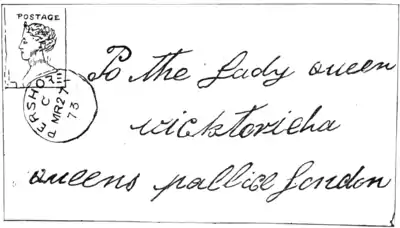 POSTAGE
PERSHORE
C
MR27
73
To the Lady queen
vicktorieha
queens pallice London